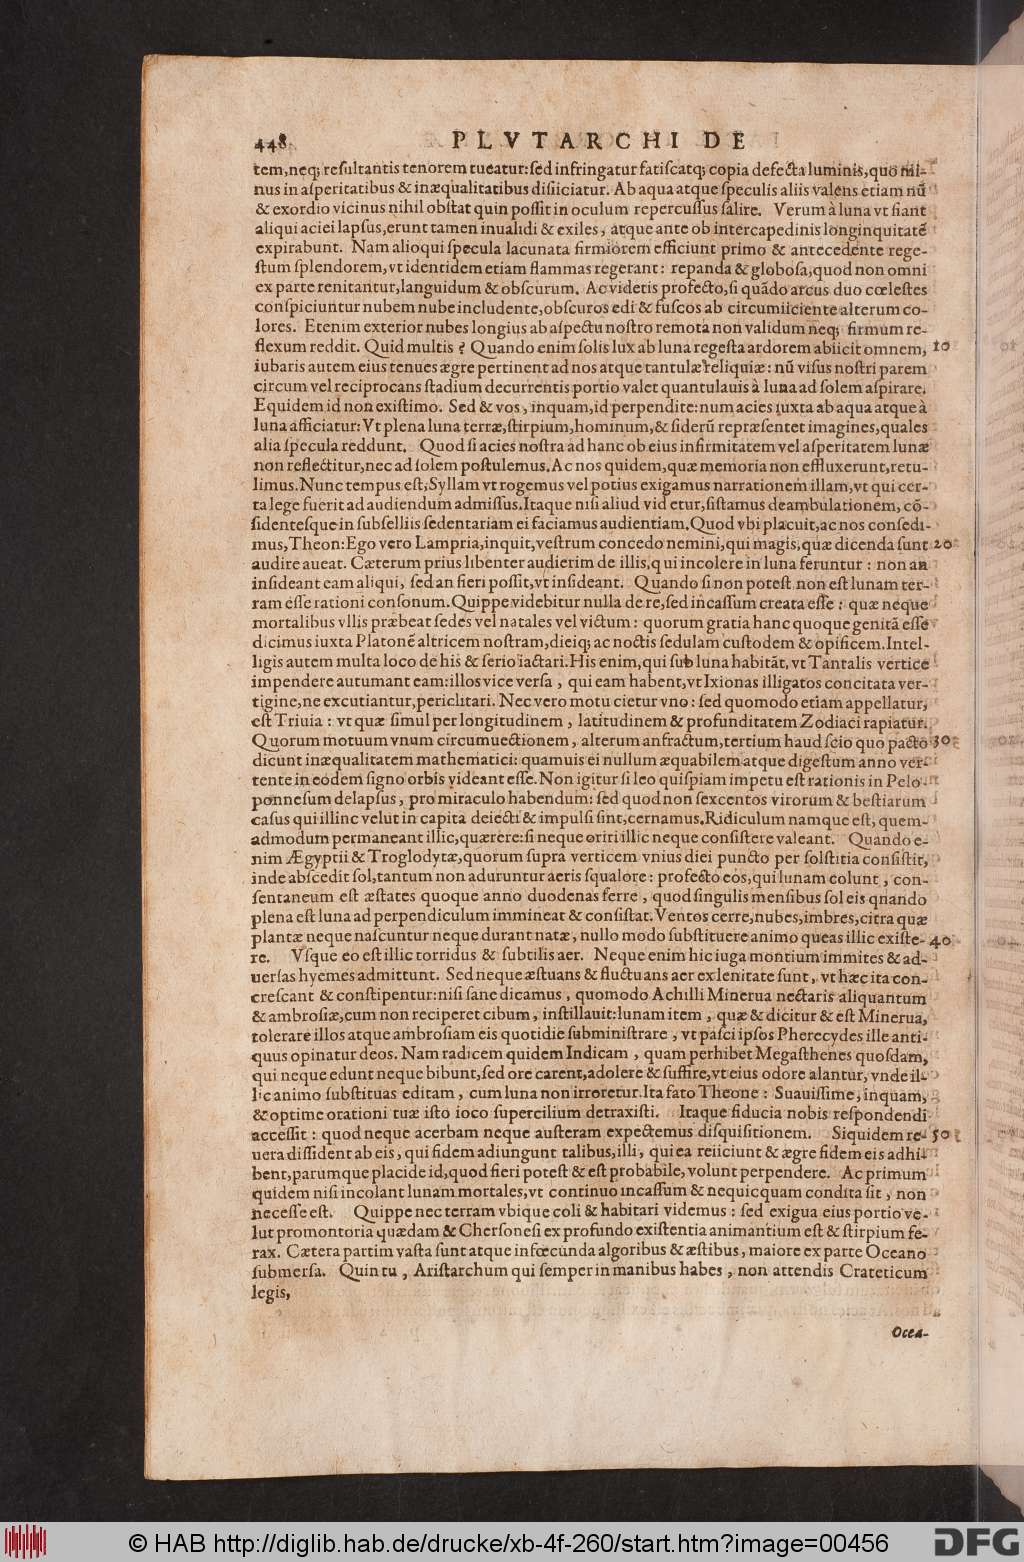 448 PLVTARCHI DE
tem, neq; resultantis tenorem tueatur: sed infringatur fatiscatq; copia defecta luminis, quo mi-
nus in asperitatibus & inæqualitatibus disiiciatur. Ab aqua atque speculis aliis valens etiam nū
& exordio vicinus nihil obstat quin possit in oculum repercussus salire. Verum à luna vt fiant
aliqui aciei lapsus, erunt tamen inualidi & exiles, atque ante ob intercapedinis longinquitatē
expirabunt. Nam alioqui specula lacunata firmiorem efficiunt primo & antecedente rege-
stum splendorem, vt identidem etiam flammas regerant: repanda & globosa, quod non omni
ex parte renitantur, languidum & obscurum. Ac videtis profecto, si quādo arcus duo cœlestes
conspiciuntur nubem nube includente, obscuros edi & fuscos ab circumiiciente alterum co-
lores. Etenim exterior nubes longius ab aspectu nostro remota non validum neq; firmum re-
flexum reddit. Quid multis? Quando enim solis lux ab luna regesta ardorem abiicit omnem, 10
iubaris autem eius tenues ægre pertinent ad nos atque tantulæ reliquiæ: nū visus nostri parem
circum vel reciprocans stadium decurrentis portio valet quantulauis à luna ad solem aspirare.
Equidem id non existimo. Sed & vos, inquam, id perpendite: num acies iuxta ab aqua atque à
luna afficiatur: Vt plena luna terræ, stirpium, hominum, & siderū repræsentet imagines, quales
alia specula reddunt. Quod si acies nostra ad hanc ob eius infirmitatem vel asperitatem lunæ
non reflectitur, nec ad solem postulemus. Ac nos quidem, quæ memoria non effluxerunt, retu-
limus. Nunc tempus est, Syllam vt rogemus vel potius exigamus narrationem illam, vt qui cer-
ta lege fuerit ad audiendum admissus. Itaque nisi aliud videtur, sistamus deambulationem, cō-
sidentesque in subselliis sedentariam ei faciamus audientiam. Quod vbi placuit, ac nos consedi-
mus, Theon: Ego vero Lampria, inquit, vestrum concedo nemini, qui magis, quæ dicenda sunt 20
audire aueat. Cæterum prius libenter audierim de illis, qui incolere in luna feruntur: non an
insideant eam aliqui, sed an fieri possit, vt insideant. Quando si non potest non est lunam ter-
ram esse rationi consonum. Quippe videbitur nulla de re, sed incassum creata esse: quæ neque
mortalibus vllis præbeat sedes vel natales vel victum: quorum gratia hanc quoque genitā esse
dicimus iuxta Platonē altricem nostram, dieiq; ac noctis sedulam custodem & opificem. Intel-
ligis autem multa loco de his & serio iactari. His enim, qui sub luna habitāt, vt Tantalis vertice
impendere autumant eam: illos vice versa, qui eam habent, vt Ixionas illigatos concitata ver-
tigine, ne excutiantur, periclitari. Nec vero motu cietur vno: sed quomodo etiam appellatur,
est Triuia: vt quæ simul per longitudinem, latitudinem & profunditatem Zodiaci rapiatur.
Quorum motuum vnum circumuectionem, alterum anfractum, tertium haud scio quo pacto 30
dicunt inæqualitatem mathematici: quamuis ei nullum æquabilem atque digestum anno ver-
tente in eodem signo orbis videant esse. Non igitur si leo quispiam impetu est rationis in Pelo-
ponnesum delapsus, pro miraculo habendum: sed quod non sexcentos virorum & bestiarum
casus qui illinc velut in capita deiecti & impulsi sint, cernamus. Ridiculum namque est, quem-
admodum permaneant illic, quærere: si neque oriri illic neque consistere valeant. Quando e-
nim Ægyptii & Troglodytæ, quorum supra verticem vnius diei puncto per solstitia consistit,
inde abscedit sol, tantum non aduruntur aeris squalore: profecto eos, qui lunam colunt, con-
sentaneum est æstates quoque anno duodenas ferre, quod singulis mensibus sol eis quando
plena est luna ad perpendiculum immineat & consistat. Ventos certe, nubes, imbres, citra quæ
plantæ neque nascuntur neque durant natæ, nullo modo substituere animo queas illic existe- 40
re. Vsque eo est illic torridus & subtilis aer. Neque enim hic iuga montium immites & ad-
uersas hyemes admittunt. Sed neque æstuans & fluctuans aer ex lenitate sunt, vt hæc ita con-
crescant & constipentur: nisi sane dicamus, quomodo Achilli Minerua nectaris aliquantum
& ambrosiæ, cum non reciperet cibum, instillauit: lunam item, quæ & dicitur & est Minerua,
tolerare illos atque ambrosiam eis quotidie subministrare, vt pasci ipsos Pherecydes ille anti-
quus opinatur deos. Nam radicem quidem Indicam, quam perhibet Megasthenes quosdam,
qui neque edunt neque bibunt, sed ore carent, adolere & suffire, vt eius odore alantur, vnde il-
lic animo substituas editam, cum luna non irroretur. Ita fato Theone: Suauissime, inquam,
& optime orationi tuæ isto ioco supercilium detraxisti. Itaque fiducia nobis respondendi
accessit: quod neque acerbam neque austeram expectemus disquisitionem. Siquidem re- 50
uera dissident ab eis, qui fidem adiungunt talibus, illi, qui ea reiiciunt & ægre fidem eis adhi-
bent, parumque placide id, quod fieri potest & est probabile, volunt perpendere. Ac primum
quidem nisi incolant lunam mortales, vt continuo incassum & nequicquam condita sit, non
necesse est. Quippe nec terram vbique coli & habitari videmus: sed exigua eius portio ve-
lut promontoria quædam & Chersonesi ex profundo existentia animantium est & stirpium fe-
rax. Cætera partim vasta sunt atque infœcunda algoribus & æstibus, maiore ex parte Oceano
submersa. Quin tu, Aristarchum qui semper in manibus habes, non attendis Crateticum
legis,
Ocea-
© HAB http://diglib.hab.de/drucke/xb-4f-260/start.htm?image=00456
DFG